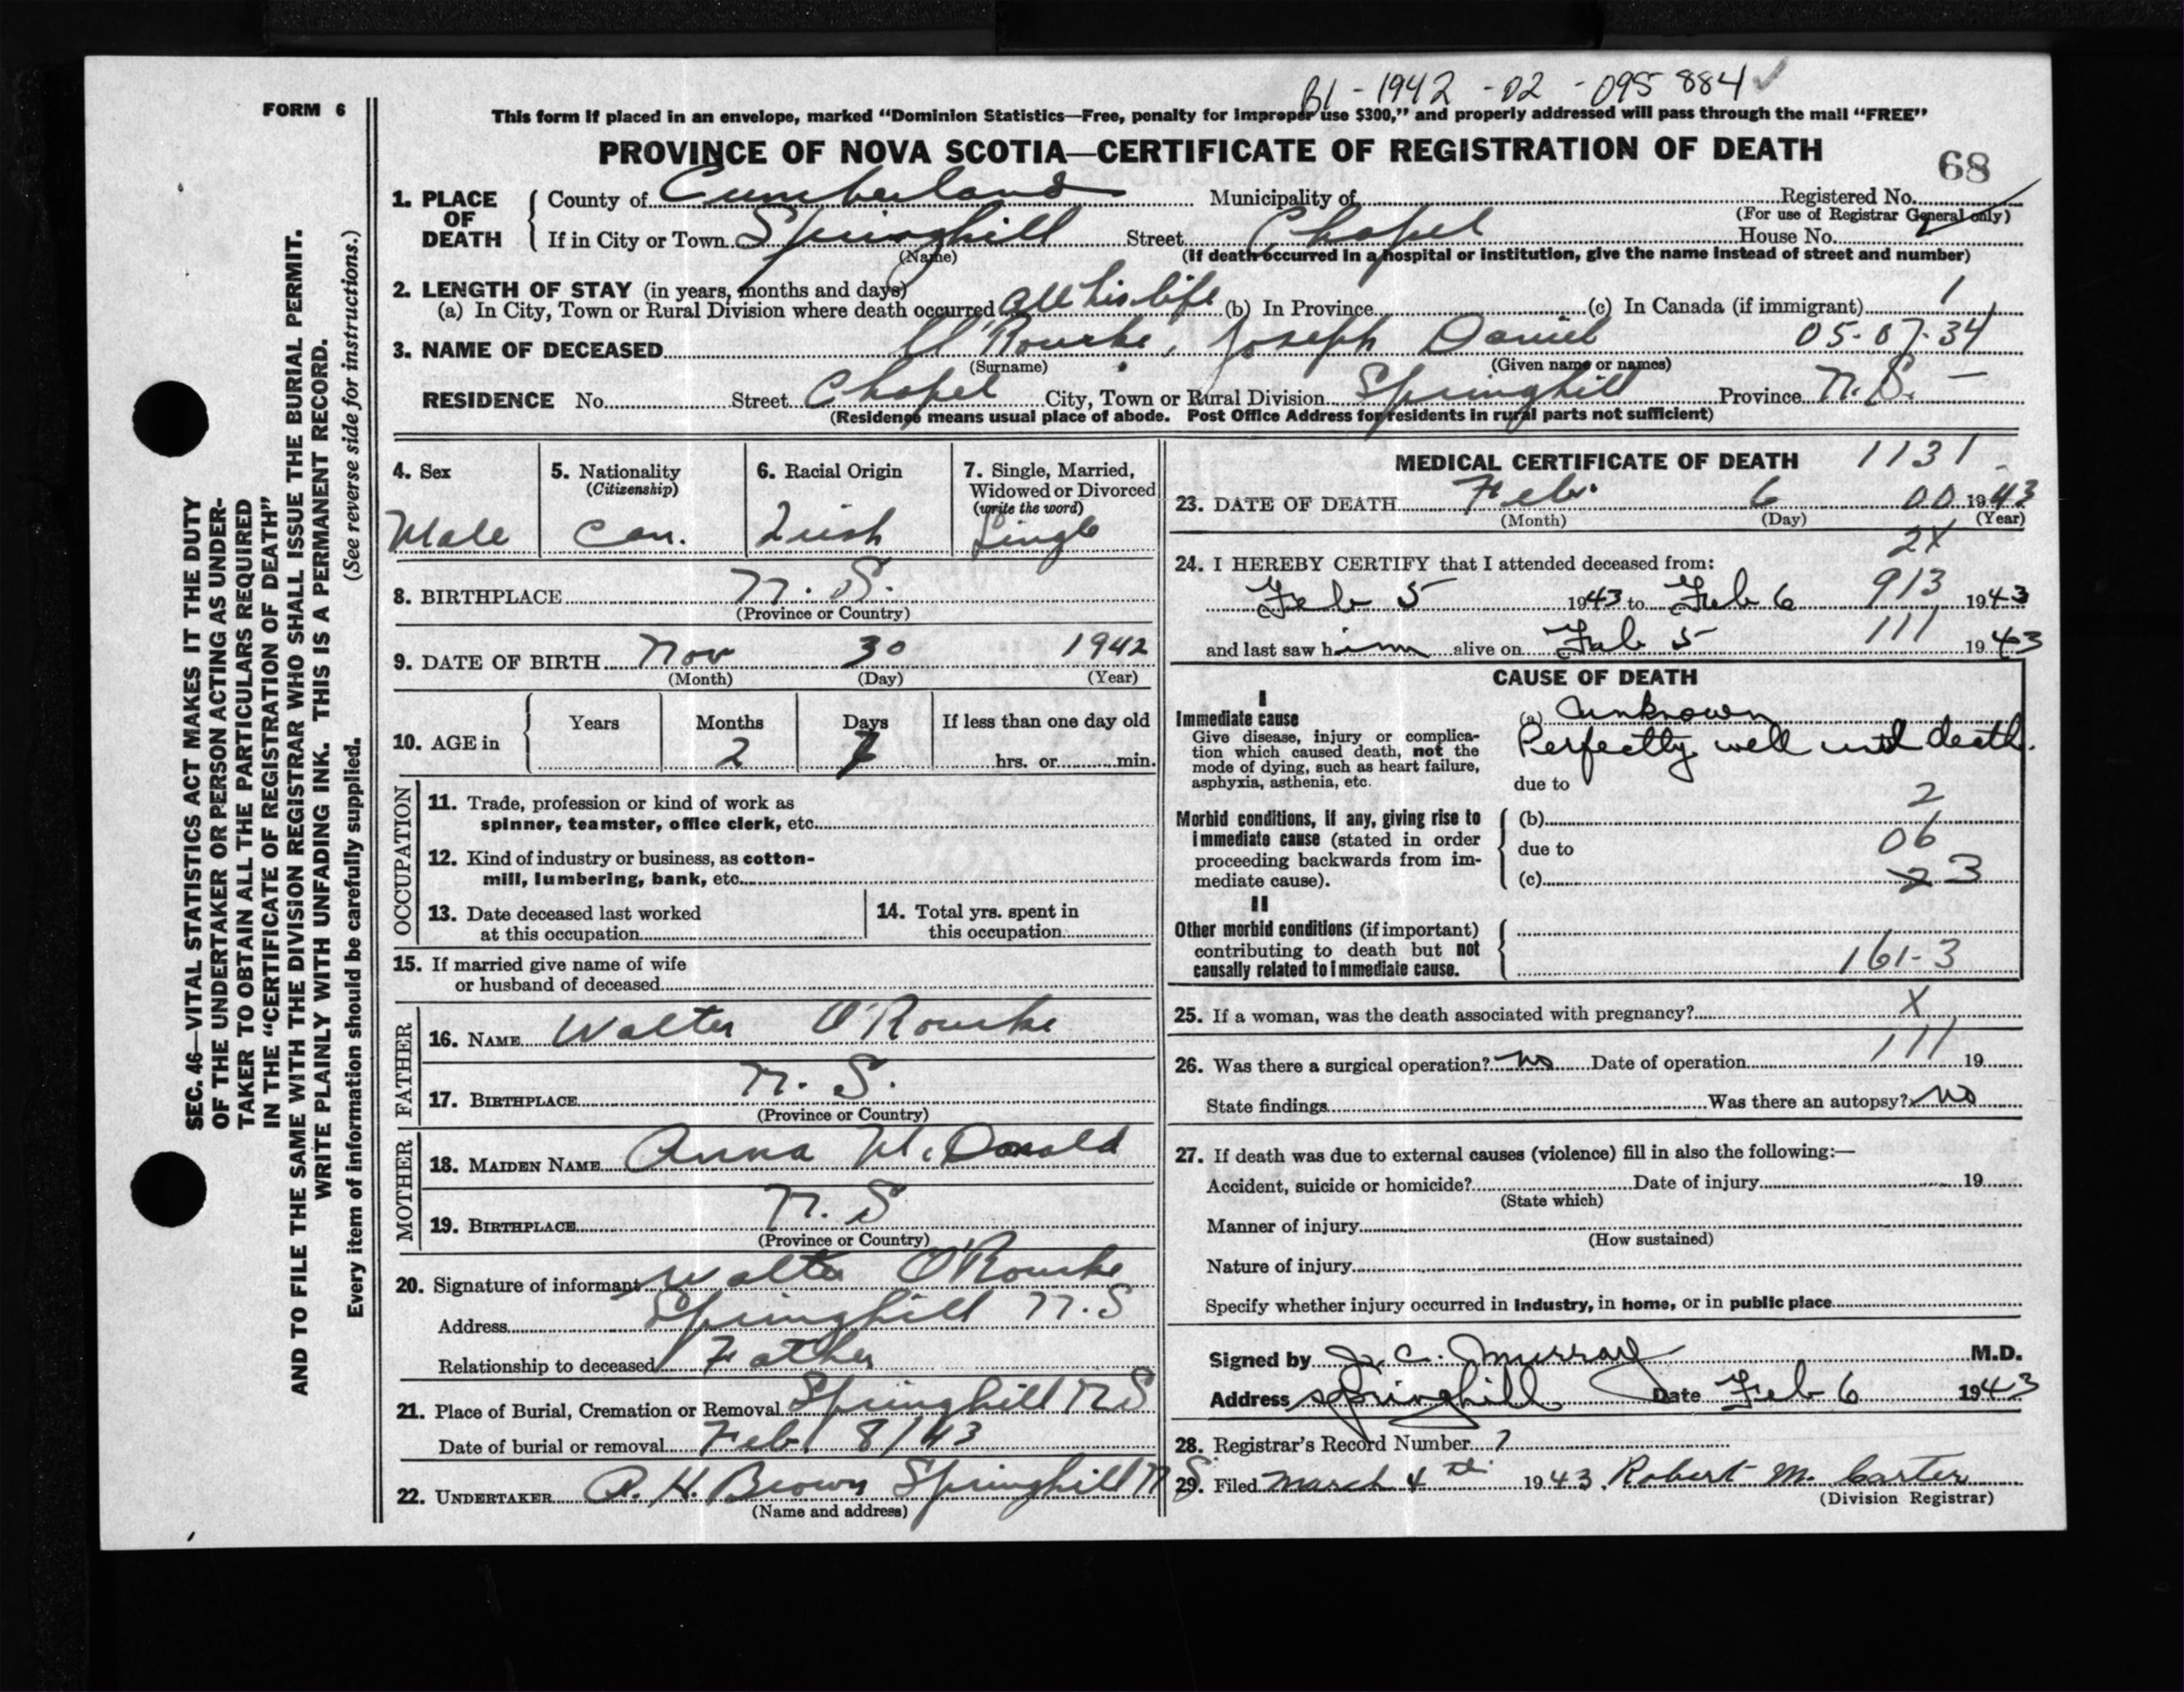 B1 - 1942 - 02 - 095 884 ✓
FORM 6
This form if placed in an envelope, marked "Dominion Statistics—Free, penalty for improper use $300," and properly addressed will pass through the mail "FREE"
PROVINCE OF NOVA SCOTIA—CERTIFICATE OF REGISTRATION OF DEATH
68
1. PLACE OF DEATH { County of Cumberland Municipality of Registered No.
(For use of Registrar General only)
If in City or Town Springhill Street Chapel House No.
(Name) (If death occurred in a hospital or institution, give the name instead of street and number)
2. LENGTH OF STAY (in years, months and days)
(a) In City, Town or Rural Division where death occurred all his life (b) In Province (c) In Canada (if immigrant) 1
3. NAME OF DECEASED O'Rourke, Joseph Daniel 05-07-34
(Surname) (Given name or names)
RESIDENCE No. Street Chapel City, Town or Rural Division Springhill Province N.S. —
(Residence means usual place of abode. Post Office Address for residents in rural parts not sufficient)
4. Sex 5. Nationality (Citizenship) 6. Racial Origin 7. Single, Married, Widowed or Divorced (write the word)
Male Can. Irish Single
8. BIRTHPLACE N.S.
(Province or Country)
9. DATE OF BIRTH Nov 30 1942
(Month) (Day) (Year)
10. AGE in { Years Months Days If less than one day old
2 7 hrs. or min.
OCCUPATION
11. Trade, profession or kind of work as
spinner, teamster, office clerk, etc.
12. Kind of industry or business, as cotton-
mill, lumbering, bank, etc.
13. Date deceased last worked
at this occupation
14. Total yrs. spent in
this occupation
15. If married give name of wife
or husband of deceased
FATHER
16. NAME Walter O'Rourke
17. BIRTHPLACE N.S.
(Province or Country)
MOTHER
18. MAIDEN NAME Anna McDonald
19. BIRTHPLACE N.S
(Province or Country)
20. Signature of informant Walter O'Rourke
Address Springhill N.S
Relationship to deceased Father
21. Place of Burial, Cremation or Removal Springhill NS
Date of burial or removal Feb 8/43
22. UNDERTAKER A. H. Brown Springhill N S
(Name and address)
MEDICAL CERTIFICATE OF DEATH 1131
23. DATE OF DEATH Feb. 6 00 1943
(Month) (Day) (Year)
2X
24. I HEREBY CERTIFY that I attended deceased from:
Feb 5 1943 to Feb 6 913 1943
and last saw him alive on Feb 5 111 1943
CAUSE OF DEATH
I
Immediate cause
Give disease, injury or complica-
tion which caused death, not the
mode of dying, such as heart failure,
asphyxia, asthenia, etc.
(a) Unknown
Perfectly well until death.
due to
Morbid conditions, if any, giving rise to
immediate cause (stated in order
proceeding backwards from im-
mediate cause).
2
(b)
due to 06
(c) 23
II
Other morbid conditions (if important)
contributing to death but not
causally related to immediate cause.
161-3
25. If a woman, was the death associated with pregnancy? X
26. Was there a surgical operation? no Date of operation 111 19
State findings Was there an autopsy? No
27. If death was due to external causes (violence) fill in also the following:—
Accident, suicide or homicide? Date of injury 19
(State which)
Manner of injury
(How sustained)
Nature of injury
Specify whether injury occurred in industry, in home, or in public place
Signed by J. C. Murray M.D.
Address Springhill Date Feb 6 1943
28. Registrar's Record Number 7
29. Filed March 4th 1943. Robert M. Carter
(Division Registrar)
SEC. 46—VITAL STATISTICS ACT MAKES IT THE DUTY
OF THE UNDERTAKER OR PERSON ACTING AS UNDER-
TAKER TO OBTAIN ALL THE PARTICULARS REQUIRED
IN THE "CERTIFICATE OF REGISTRATION OF DEATH"
AND TO FILE THE SAME WITH THE DIVISION REGISTRAR WHO SHALL ISSUE THE BURIAL PERMIT.
WRITE PLAINLY WITH UNFADING INK. THIS IS A PERMANENT RECORD.
Every item of information should be carefully supplied. (See reverse side for instructions.)